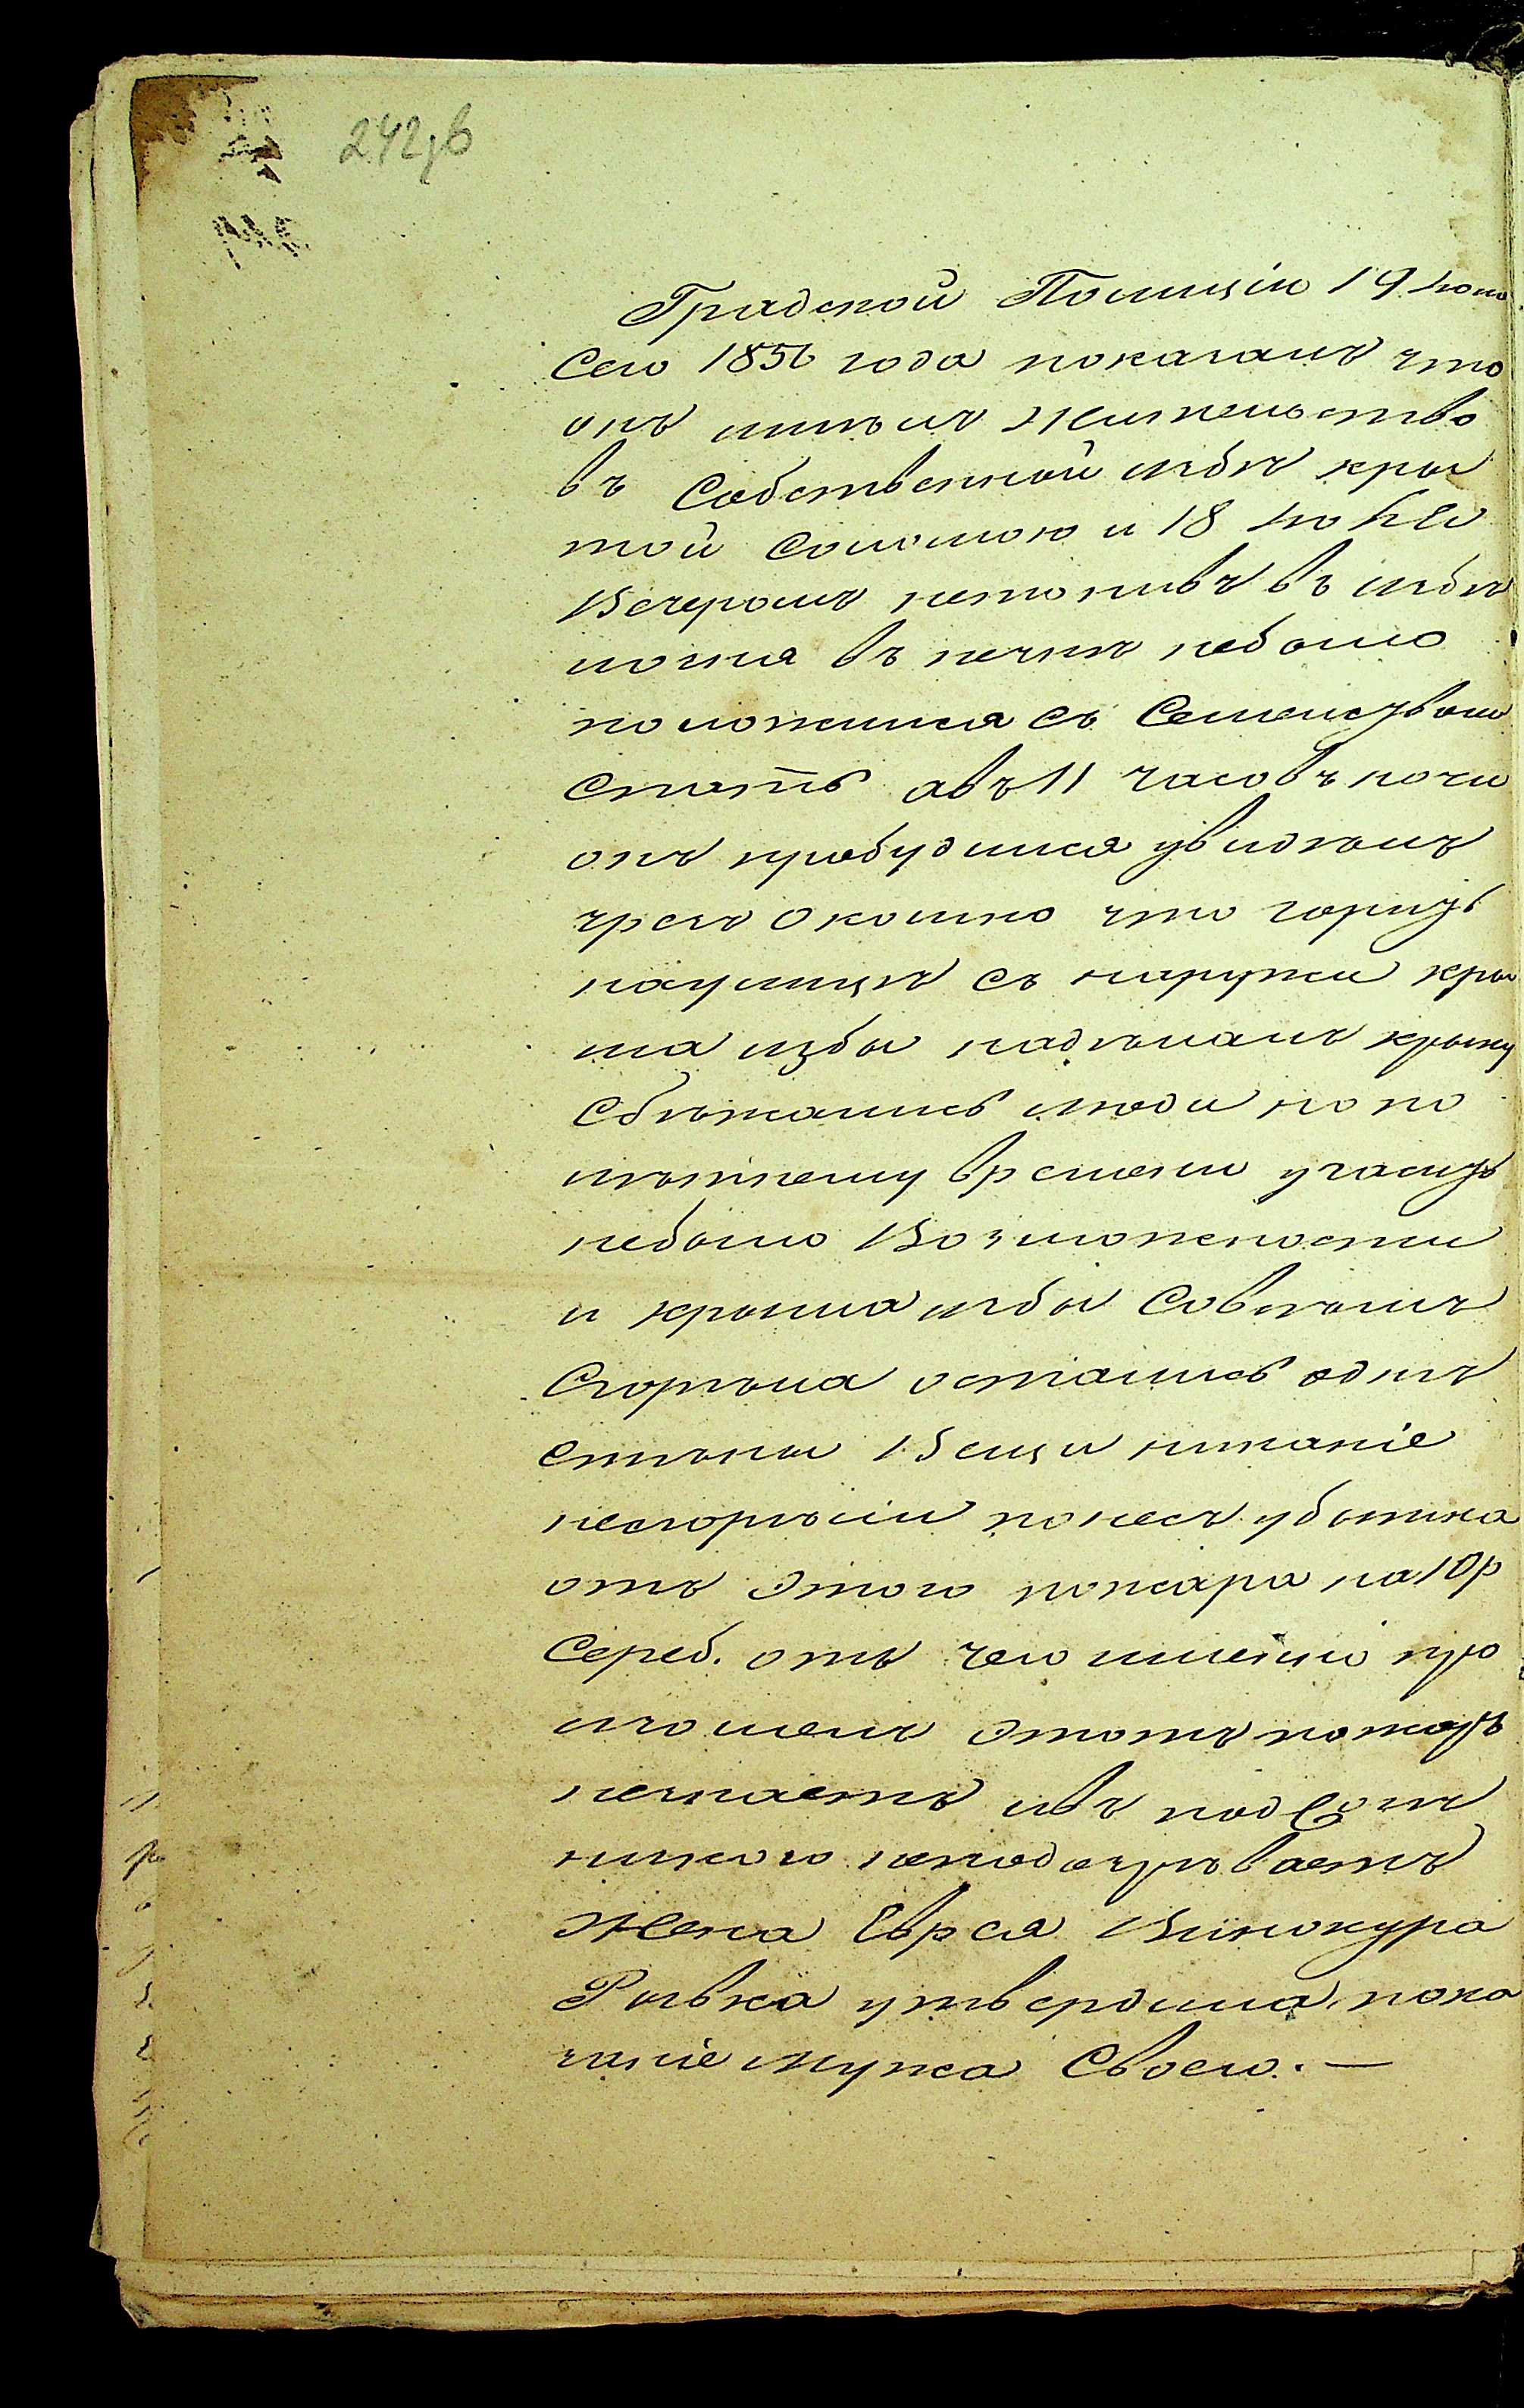 242зв
Градской Полиціи 19 Іюля
Сего 1856 года показалъ что
онъ имѣлъ Жительство
въ Собственной избѣ кры
той Соломою и 18 Іюля
Вечеромъ нетопивъ въ избѣ
и огня въ печкѣ небыло
положился съ Семействомъ
Спать а въ 11 часовъ ночи
онъ пробудился увидѣлъ
чрезъ Окошко что горитъ
наулицѣ съ наружи кры
ша избы надѣлалъ крыку
Сбѣжались люди но по
лѣтнему времени угасить
небыло Возможности
и крыша избы Совсѣмъ
Сгорѣла остались однѣ
Стѣны Вещи никакіе
несгорѣли понесъ убытка
отъ Этого пожара на 10 р
Сереб. отъ чего именно про
изошелъ Этотъ пожаръ
незнаетъ и въ поджогѣ
никого неподозрѣваетъ
Жена Евреѧ Винокура
Рывка утвердила пока
заніе мужа Своего. —